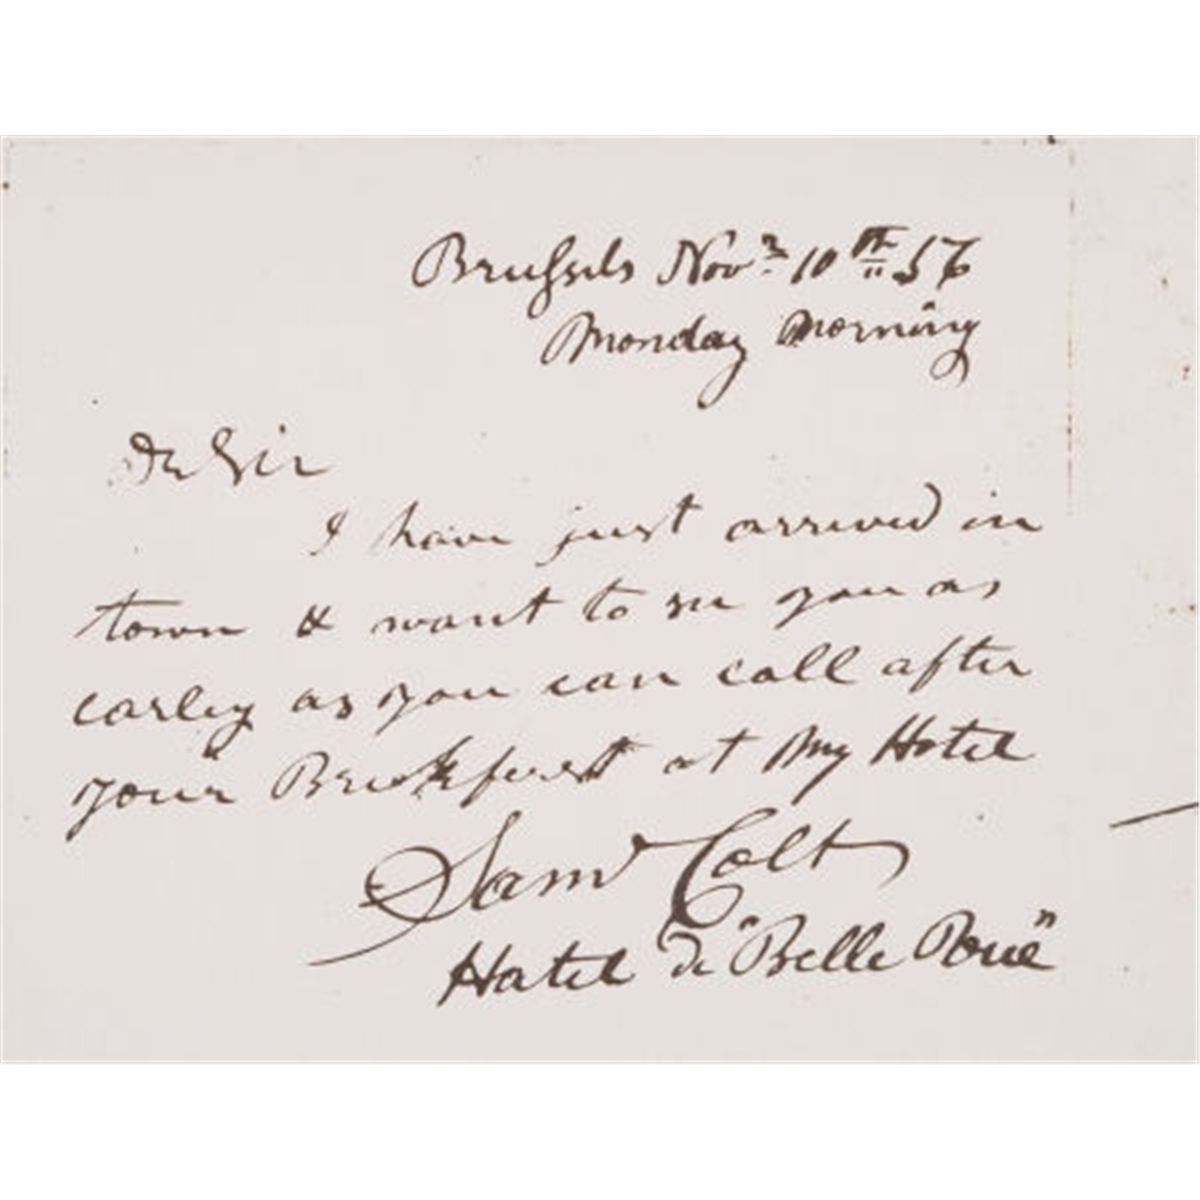 Brussels Novr 10th 56
Monday Morning
Dr Sir
I have just arrived in
town & want to see you as
earley as you can call after
your Breckferst at My Hotel
Saml Colt
Hotel de "Belle Vue"